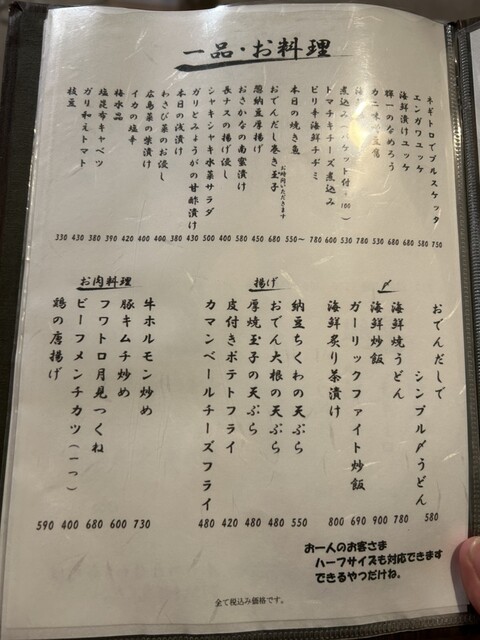 一品・お料理
ネギトロでブルスケッタ 750
エンガワユッケ 580
海鮮漬けユッケ 680
輝一のなめろう 680
カニ味噌豆腐 530
780
煮込み(バケット付+180) 530
トマチキチーズ煮込み 600
ピリ辛海鮮チヂミ 780
本日の焼き魚 550~
おでんだし巻き玉子 お時間いただきます 680
納豆厚揚げ 450
おさかなの南蛮漬け 580
長ナスの揚げ浸し 400
シャキシャキ水菜サラダ 500
ガリとみょうがの甘酢漬け 430
本日の浅漬け 380
わさび菜のお浸し 400
広島菜の柴漬け 400
イカの塩辛 420
梅水晶 390
塩昆布キャベツ 380
ガリ和えトマト 430
枝豆 330
〆
おでんだしで
シンプル〆うどん 580
海鮮焼うどん 780
海鮮炒飯 900
ガーリックファイト炒飯 690
海鮮炙り茶漬け 800
揚げ
納豆ちくわの天ぷら 550
おでん大根の天ぷら 480
厚焼玉子の天ぷら 480
皮付きポテトフライ 420
カマンベールチーズフライ 480
お肉料理
牛ホルモン炒め 730
豚キムチ炒め 600
フワトロ月見つくね 680
ビーフメンチカツ(一つ) 400
鶏の唐揚げ 590
お一人のお客さま
ハーフサイズも対応できます
できるやつだけね。
全て税込み価格です。